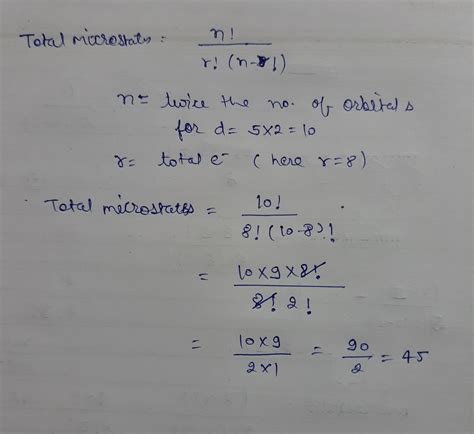 Total microstates = n! / r! (n-r!)
n = twice the no. of orbitals
for d = 5×2=10
r = total e⁻ (here r=8)
Total microstates = 10! / 8! (10-8)!
= 10×9×8! / 8! 2!
= 10×9 / 2×1 = 90 / 2 = 45